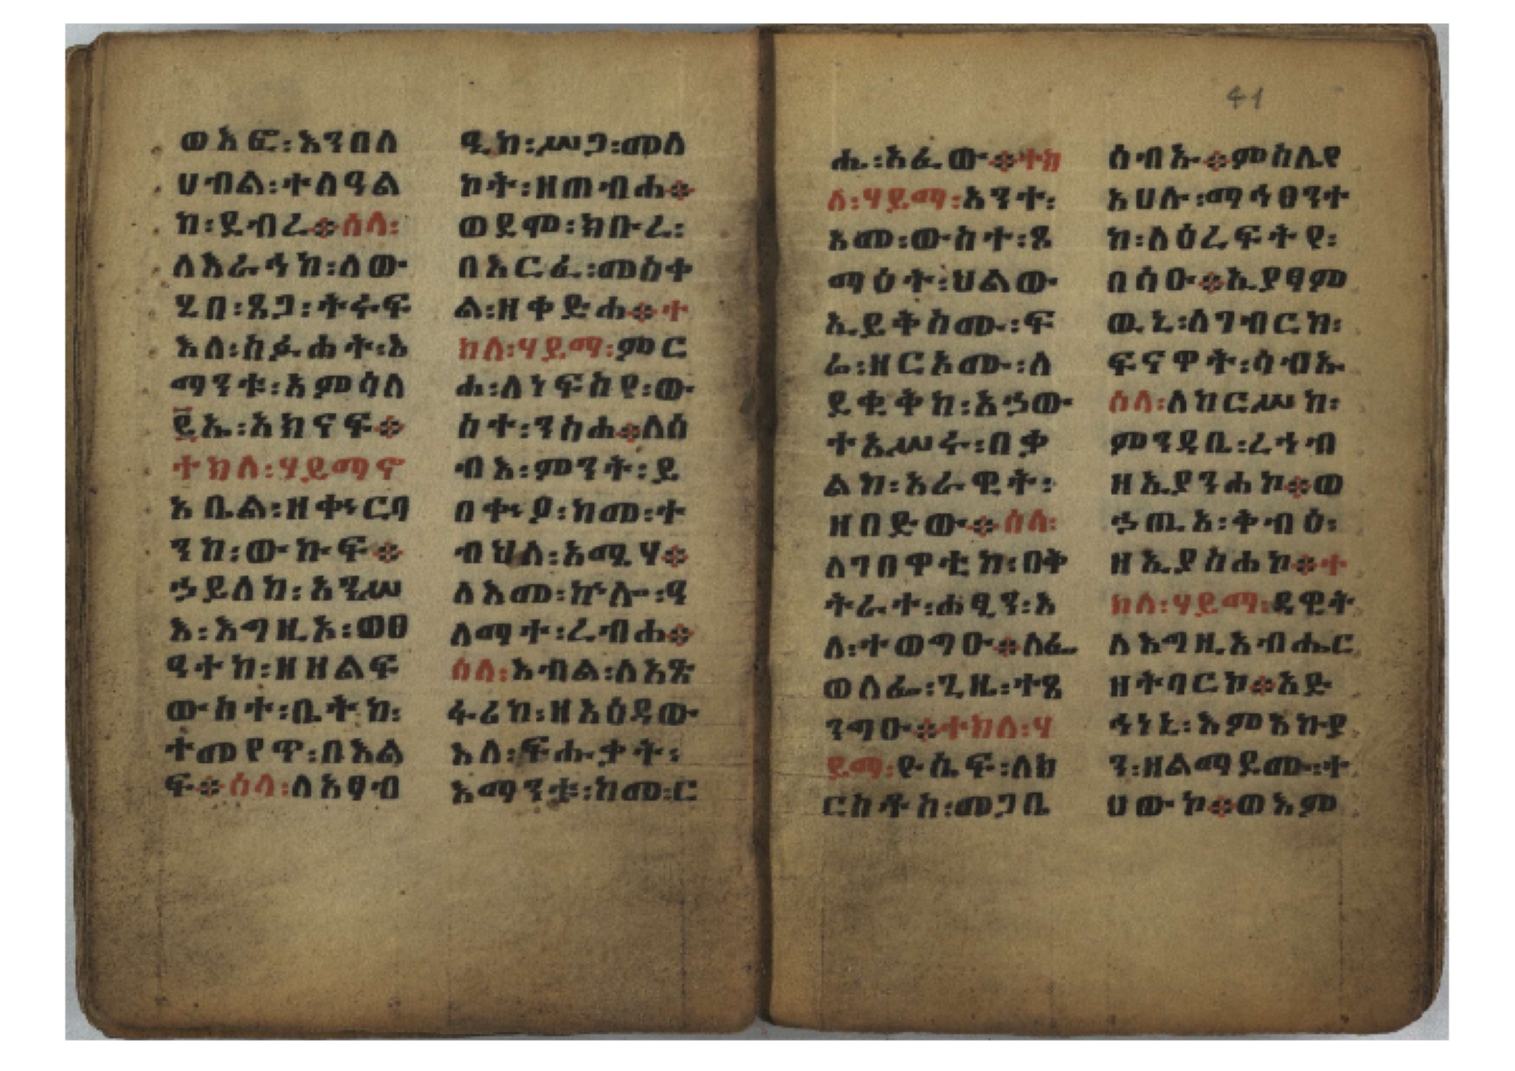 ወእፎ፡እንበለ
ሀብል፡ተሰዓል
ከ፡ደብረ፨ሰላ፡
ለእራኅከ፡ለው
ሂበ፡ጸጋ፡ትሩፍ
እለ፡ስፉሐት፡እ
ማንቱ፡አምሳለ
፪ኤ፡አክናፍ፨
ተክለ፡ሃይማኖ
አቤል፡ዘቀነርባ
ንከ፡ውኩፍ፨
ኃይለከ፡አንሥ
እ፡እግዚኦ፡ወፀ
ዓተከ፡ዘዘልፍ
ውስተ፡ቤትከ፡
ተመየጥ፡በእል
ፍ፨ሰላ፡ለአፃብ
ዒከ፡ሥጋ፡መለ
ኮት፡ዘጠብሐ፨
ወደሞ፡ክቡረ፡
በእርፈ፡መስቀ
ል፡ዘቀድሐ፨ተ
ክለ፡ሃይማ፡ምር
ሐ፡ለነፍስየ፡ው
ስተ፡ንስሐ፨ለሰ
ብእ፡ምንት፡ይ
በቀኑዖ፡ከመ፡ተ
ብህለ፡አሚሃ፨
ለእመ፡ኵሎ፡ዓ
ለማተ፡ረብሐ፨
ሰላ፡እብል፡ለአጽ
ፋሪከ፡ዘአዕዳው
እለ፡ፍሑቃት፡
እማንቱ፡ከመ፡ር
ሒ፡አፈው፨ተክ
ለ፡ሃይማ፡አንተ፡
እመ፡ውስተ፡ጾ
ማዕት፡ህልው
ኢይቅስሙ፡ፍ
ሬ፡ዘርኦሙ፡ለ
ደቂቅከ፡አኃው
ተአሥሩ፡በቃ
ልከ፡አራዊት፡
ዘበድው፨ሰላ፡
ለገበዋቲከ፡በቅ
ትራተ፡ሐፂን፡እ
ለ፡ተወግዑ፨ሶፈ
ወሶፈ፡ጊዜ፡ተጸ
ንግዑ፨ተክለ፡ሃ
ይማ፡ዮሴፍ፡ለክ
ርስቶስ፡መጋቤ
ሰብኡ፨ምስሌየ
አሀሉ፡ማኅፀንተ
ከ፡ለዕረፍትየ፡
በሳዑ፨ኢያፃም
ዉኒ፡ለገብርከ፡
ፍናዋት፡ሳብኡ
ሰላ፡ለከርሥከ፡
ምንዳቤ፡ረኀብ
ዘኢያንሐኮ፨ወ
ኃጢአ፡ቅብዕ፡
ዘኢያስሐኮ፨ተ
ክለ፡ሃይማ፡ዳዊት
ለእግዚአብሔር
ዘትባርኮ፨አድ
ኅነኒ፡እምእኩያ
ን፡ዘልማደሙ፡ተ
ሀውኮ፨ወእም
41